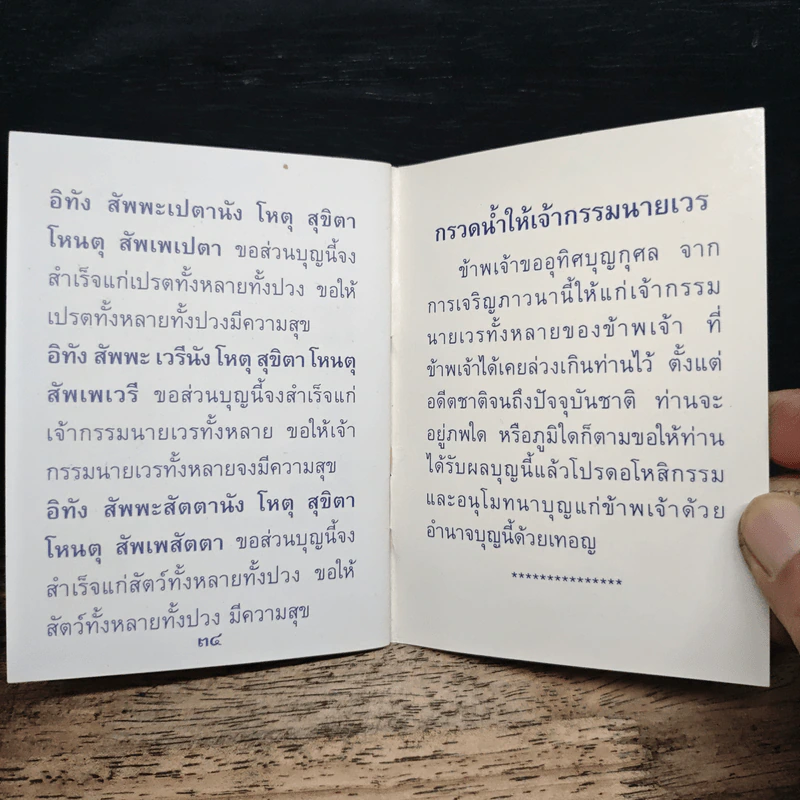 อิทัง สัพพะเปตานัง โหตุ สุขิตา
โหนตุ สัพเพเปตา ขอส่วนบุญนี้จง
สำเร็จแก่เปรตทั้งหลายทั้งปวง ขอให้
เปรตทั้งหลายทั้งปวงมีความสุข
อิทัง สัพพะ เวรีนัง โหตุ สุขิตา โหนตุ
สัพเพเวรี ขอส่วนบุญนี้จงสำเร็จแก่
เจ้ากรรมนายเวรทั้งหลาย ขอให้เจ้า
กรรมนายเวรทั้งหลายจงมีความสุข
อิทัง สัพพะสัตตานัง โหตุ สุขิตา
โหนตุ สัพเพสัตตา ขอส่วนบุญนี้จง
สำเร็จแก่สัตว์ทั้งหลายทั้งปวง ขอให้
สัตว์ทั้งหลายทั้งปวง มีความสุข
๓๔
กรวดน้ำให้เจ้ากรรมนายเวร
ข้าพเจ้าขออุทิศบุญกุศล จาก
การเจริญภาวนานี้ให้แก่เจ้ากรรม
นายเวรทั้งหลายของข้าพเจ้า ที่
ข้าพเจ้าได้เคยล่วงเกินท่านไว้ ตั้งแต่
อดีตชาติจนถึงปัจจุบันชาติ ท่านจะ
อยู่ภพใด หรือภูมิใดก็ตามขอให้ท่าน
ได้รับผลบุญนี้แล้วโปรดอโหสิกรรม
และอนุโมทนาบุญแก่ข้าพเจ้าด้วย
อำนาจบุญนี้ด้วยเทอญ
***************